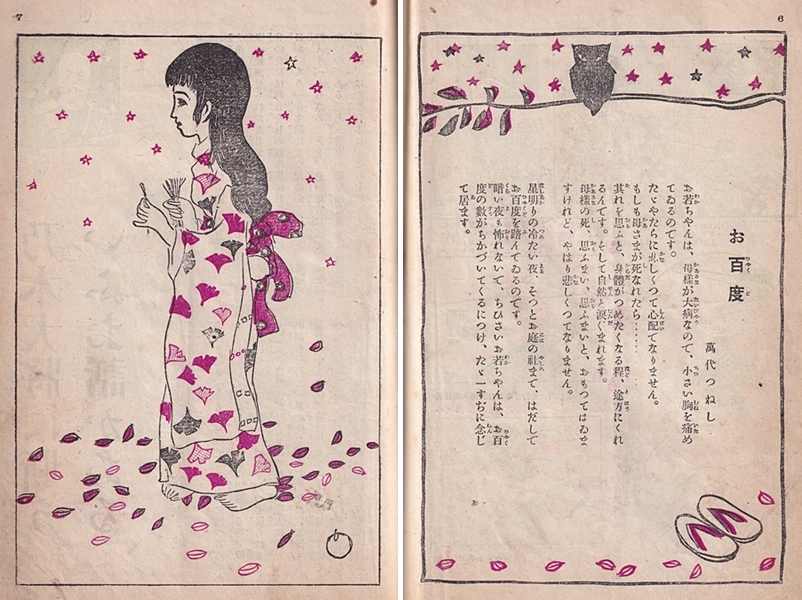 6
お百度
萬代つねし
お若ちやんは、母様が大病なので、小さい胸を痛め
てゐるのです。
たゞやたらに悲しくつて心配でなりません。
もしも母さまが死なれたら……
其れを思ふと、身體がつめたくなる程、途方にくれ
るんです。そして自然と涙ぐまれます。
母様の死、思ふまい、思ふまいと、おもつてはゐま
すけれど、やはり悲しくつてなりません。
星明りの冷たい夜、そつとお庭の社まで、はだしで
お百度を踏んでゐるのです。
暗い夜も怖れないで、ちひさいお若ちやんは、お百
度の數がちかづいてくるにつけ、たゞ一すぢに念じ
て居ます。
7